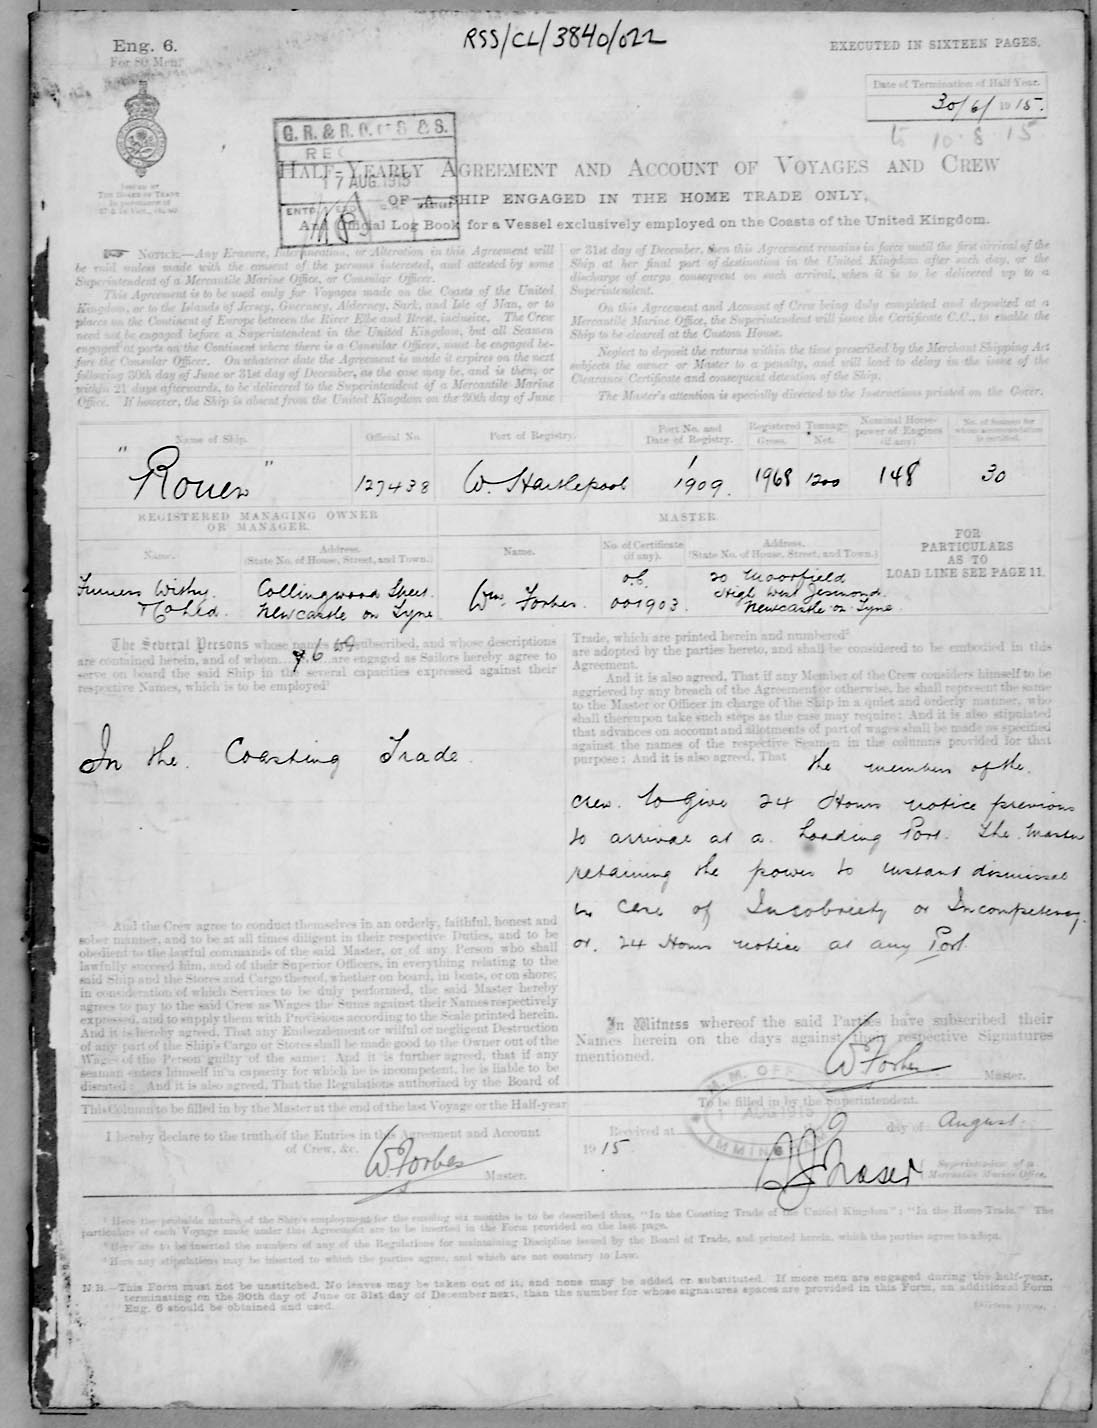 RSS/CL/3840/022
Eng. 6.
For 80 Men.
EXECUTED IN SIXTEEN PAGES.
Date of Termination of Half Year.
30/6/1915.
to 10.8.15
ISSUED BY
THE BOARD OF TRADE
G. R. & R. O. S & S.
REC
17 AUG. 1915
HALF-YEARLY AGREEMENT AND ACCOUNT OF VOYAGES AND CREW
OF A SHIP ENGAGED IN THE HOME TRADE ONLY,
And Official Log Book for a Vessel exclusively employed on the Coasts of the United Kingdom.
NOTICE.—Any Erasure, Interlineation, or Alteration in this Agreement will
be void unless made with the consent of the persons interested, and attested by some
Superintendent of a Mercantile Marine Office, or Consular Officer.
This Agreement is to be used only for Voyages made on the Coasts of the United
Kingdom, or to the Islands of Jersey, Guernsey, Alderney, Sark, and Isle of Man, or to
places on the Continent of Europe between the River Elbe and Brest, inclusive. The Crew
need not be engaged before a Superintendent in the United Kingdom, but all Seamen
engaged at ports on the Continent where there is a Consular Officer, must be engaged be-
fore the Consular Officer. On whatever date the Agreement is made it expires on the next
following 30th day of June or 31st day of December, as the case may be, and is then, or
within 21 days afterwards, to be delivered to the Superintendent of a Mercantile Marine
Office. If however, the Ship is absent from the United Kingdom on the 30th day of June
or 31st day of December, then this Agreement remains in force until the first arrival of the
Ship at her final port of destination in the United Kingdom after such day, or the
discharge of cargo consequent on such arrival, when it is to be delivered up to a
Superintendent.
On this Agreement and Account of Crew being duly completed and deposited at a
Mercantile Marine Office, the Superintendent will issue the Certificate C.C., to enable the
Ship to be cleared at the Custom House.
Neglect to deposit the returns within the time prescribed by the Merchant Shipping Act
subjects the owner or Master to a penalty, and will lead to delay in the issue of the
Clearance Certificate and consequent detention of the Ship.
The Master's attention is specially directed to the Instructions printed on the Cover.
Name of Ship. Official No. Port of Registry. Port No. and Date of Registry. Registered Tonnage Gross. Net. Nominal Horse-power of Engines (if any)
"Rouen" 127438 W. Hartlepool 1/1909. 1968 1200 148 30
REGISTERED MANAGING OWNER
OR MANAGER.
MASTER
FOR
PARTICULARS
AS TO
LOAD LINE SEE PAGE 11.
Name. Address. (State No. of House, Street, and Town.) Name. No. of Certificate (if any). Address. (State No. of House, Street, and Town.)
Furness Withy & Co Ltd. Collingwood Street Newcastle on Tyne Wm. Forbes. 001903. 20 Moorfield High West Jesmond. Newcastle on Tyne.
The Several Persons whose names are subscribed, and whose descriptions
are contained herein, and of whom 6 are engaged as Sailors hereby agree to
serve on board the said Ship in the several capacities expressed against their
respective Names, which is to be employed¹
In the Coasting Trade.
And the Crew agree to conduct themselves in an orderly, faithful, honest and
sober manner, and to be at all times diligent in their respective Duties, and to be
obedient to the lawful commands of the said Master, or of any Person who shall
lawfully succeed him, and of their Superior Officers, in everything relating to the
said Ship and the Stores and Cargo thereof, whether on board, in boats, or on shore;
in consideration of which Services to be duly performed, the said Master hereby
agrees to pay to the said Crew as Wages the Sums against their Names respectively
expressed, and to supply them with Provisions according to the Scale printed herein.
And it is hereby agreed, That any Embezzlement or wilful or negligent Destruction
of any part of the Ship's Cargo or Stores shall be made good to the Owner out of the
Wages of the Person guilty of the same: And it is further agreed, that if any
seaman enters himself in a capacity for which he is incompetent, he is liable to be
disrated: And it is also agreed, That the Regulations authorized by the Board of
Trade, which are printed herein and numbered²
are adopted by the parties hereto, and shall be considered to be embodied in this
Agreement.
And it is also agreed, That if any Member of the Crew considers himself to be
aggrieved by any breach of the Agreement or otherwise, he shall represent the same
to the Master or Officer in charge of the Ship in a quiet and orderly manner, who
shall thereupon take such steps as the case may require: And it is also stipulated
that advances on account and allotments of part of wages shall be made as specified
against the names of the respective Seamen in the columns provided for that
purpose: And it is also agreed, That the members of the
crew. to give 24 Hours notice previous
to arrival at a Loading Port. The Master
retaining the power to instant dismissal
in case of Insobriety or Incompetency.
or. 24 Hours notice at any Port.
In Witness whereof the said Parties have subscribed their
Names herein on the days against their respective Signatures
mentioned.
W Forbes Master.
This Column to be filled in by the Master at the end of the last Voyage or the Half-year
I hereby declare to the truth of the Entries in this Agreement and Account
of Crew, &c.
W. Forbes Master.
To be filled in by the Superintendent.
M. M. OFF
AUG 1915
IMMING
Received at 9 day of August.
1915.
Fraser Superintendent of a Mercantile Marine Office.
¹ Here the probable nature of the Ship's employment for the ensuing six months is to be described thus, "In the Coasting Trade of the United Kingdom"; "In the Home Trade." The
particulars of each Voyage made under this Agreement are to be inserted in the Form provided on the last page.
² Here are to be inserted the numbers of any of the Regulations for maintaining Discipline issued by the Board of Trade, and printed herein, which the parties agree to adopt.
Here any stipulations may be inserted to which the parties agree, and which are not contrary to Law.
N.B.—This Form must not be unstitched. No leaves may be taken out of it, and none may be added or substituted. If more men are engaged during the half-year,
terminating on the 30th day of June or 31st day of December next, than the number for whose signatures spaces are provided in this Form, an additional Form
Eng. 6 should be obtained and used.